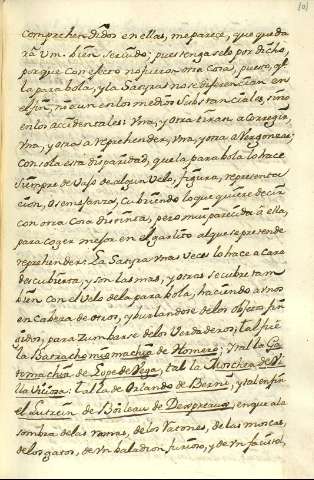 101
comprehendidos en ellas, me parece, que queda
rá Vm. bien servido; pues tengaselo por dicho,
porque con efecto no fueron otra cosa, puesto, q.e
la parabola, y la Satyra no se diferencian en
el fin, ni aun en los medios substanciales, sino
en los accidentales: Una, y otra tiran a corregir,
Una, y otra a reprehender, Una, y otra a Vergonzar;
con sola esta disparidad, que la parabola lo hace
siempre devajo de algun Velo, figura, representa
cion, o semejanza, cubriendo lo que quiere decir
con otra cosa distinta, pero mui parecida a ella,
para coger mejor en el garlito al que se pretende
reprehender: La Satyra unas veces lo hace a cara
descubierta, y son las mas, y otras se cubre tam
bien con el velo de la parabola, haciendo a unos
en Cabeza de otros, y burlandose de los objetos fin
gidos, para zumbarse de los Verdaderos; tal fue
la Batrachomiomachia de Homero; y tal la Ga
tomachia de Lope de Vega, tal la Moschea de Vi
lla Viciosa: tal la de Orlando de Berni; y tal en fin
el Lutrein de Boileau de Despreaux, en que a la
sombra de las ranas, de los ratones, de las moscas,
de los gatos, de un baladron furioso, y de un facistol,